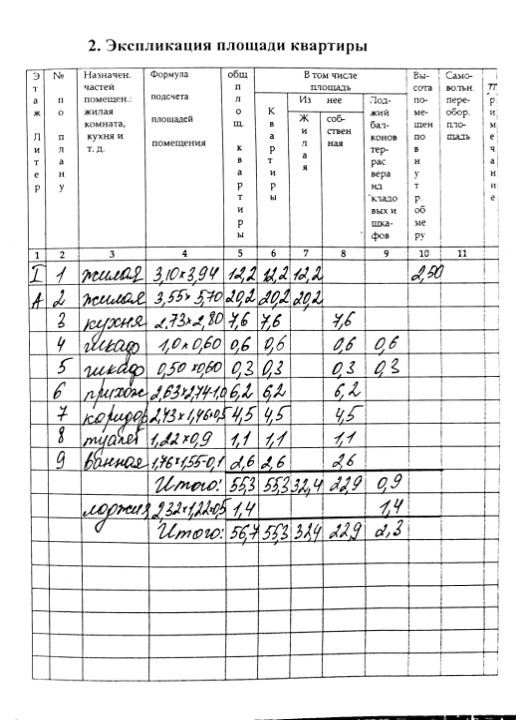 2. Экспликация площади квартиры
Этаж Литер
№ по плану
Назначен. частей помещен.: жилая комната, кухня и т. д.
Формула подсчета площадей помещения
общ площ. квартиры
В том числе площадь
Квартиры
Из нее
Жилая
собственная
Лоджий балконов террас веранд кладовых и шкафов
Высота помещен по внутр. обмеру
Самовольн. переобор. площадь
Примечание
1 2 3 4 5 6 7 8 9 10 11
I 1 жилая 3,10×3,94 12,2 12,2 12,2 2,50
А 2 жилая 3,55×5,70 20,2 20,2 20,2
3 кухня 2,73×2,80 7,6 7,6 7,6
4 шкаф 1,0×0,60 0,6 0,6 0,6 0,6
5 шкаф 0,50×0,60 0,3 0,3 0,3 0,3
6 прихож 2,63×2,74-1,0 6,2 6,2 6,2
7 коридор 2,73×1,46+0,5 4,5 4,5 4,5
8 туалет 1,22×0,9 1,1 1,1 1,1
9 ванная 1,76×1,55-0,1 2,6 2,6 2,6
Итого: 55,3 55,3 32,4 22,9 0,9
лоджия 2,32×1,22×0,5 1,4 1,4
Итого: 56,7 55,3 32,4 22,9 2,3